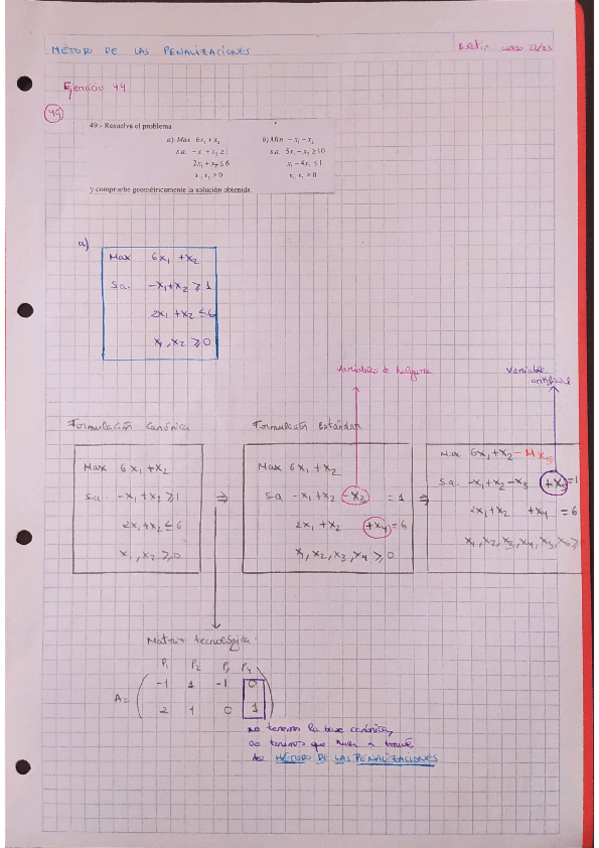 MÉTODO DE LAS PENALIZACIONES
Ejercicio 49
49
49.- Resuelva el problema
a) Max 6x₁ + x₂ b) Min −x₁ − x₂
s.a. −x₁ + x₂ ≥ 1 s.a. 5x₁ − x₂ ≥ 10
2x₁ + x₂ ≤ 6 x₁ − 4x₂ ≤ 1
x₁, x₂ ≥ 0 x₁, x₂ ≥ 0
y compruebe geométricamente la solución obtenida.
a)
Max 6x₁ + x₂
s.a. −x₁ + x₂ ≥ 1
2x₁ + x₂ ≤ 6
x₁, x₂ ≥ 0
Variables de holgura
Variable artificial
Formulación Canónica
Max 6x₁ + x₂
s.a. −x₁ + x₂ ≥ 1
2x₁ + x₂ ≤ 6
x₁, x₂ ≥ 0
⇒
Formulación Estándar
Max 6x₁ + x₂
s.a −x₁ + x₂ −x₃ = 1
2x₁ + x₂ +x₄ = 6
x₁, x₂, x₃, x₄ ≥ 0
⇒
Max 6x₁ + x₂ − Mx₅
s.a. −x₁ + x₂ − x₃ +x₅ = 1
2x₁ + x₂ +x₄ = 6
Matriz tecnológica:
P₁ P₂ P₃ P₄
−1 1 −1 0
A =
2 1 0 1
no tenemos la base canónica,
tenemos que
MÉTODO DE LAS PENALIZACIONES